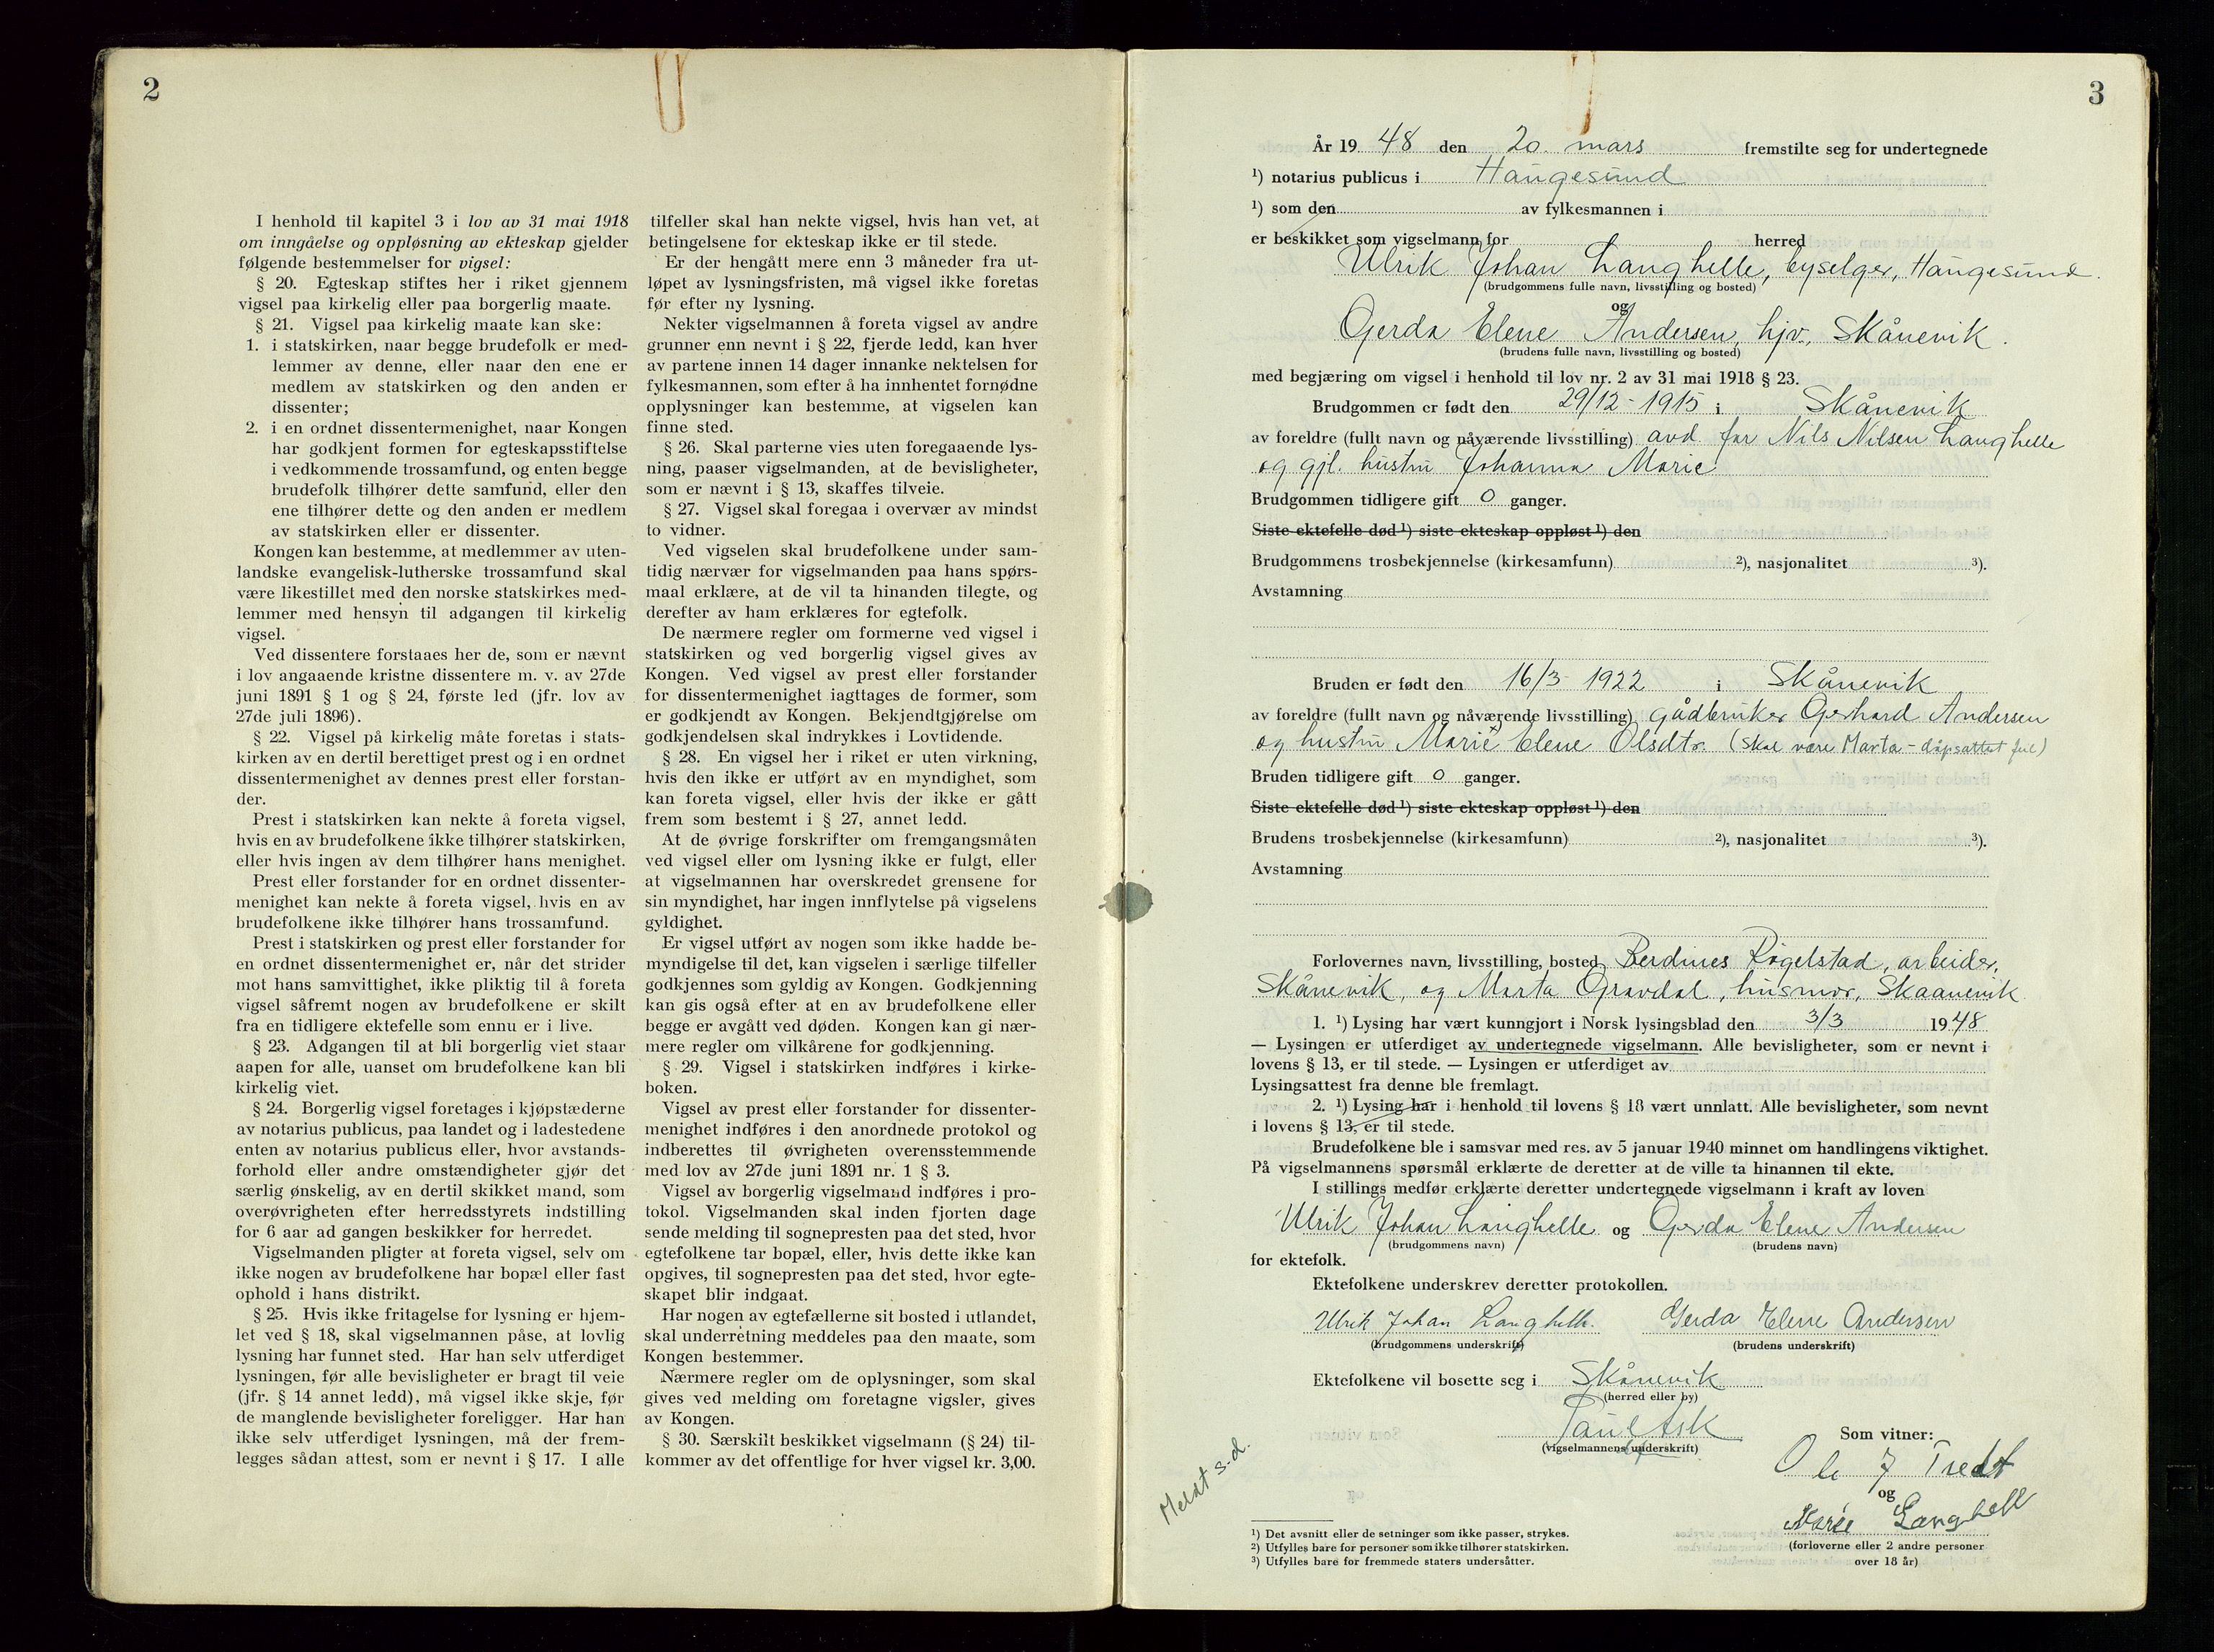 2
I henhold til kapitel 3 i lov av 31 mai 1918
om inngåelse og oppløsning av ekteskap gjelder
følgende bestemmelser for vigsel:
§ 20. Egteskap stiftes her i riket gjennem
vigsel paa kirkelig eller paa borgerlig maate.
§ 21. Vigsel paa kirkelig maate kan ske:
1. i statskirken, naar begge brudefolk er med-
lemmer av denne, eller naar den ene er
medlem av statskirken og den anden er
dissenter;
2. i en ordnet dissentermenighet, naar Kongen
har godkjent formen for egteskapsstiftelse
i vedkommende trossamfund, og enten begge
brudefolk tilhører dette samfund, eller den
ene tilhører dette og den anden er medlem
av statskirken eller er dissenter.
Kongen kan bestemme, at medlemmer av uten-
landske evangelisk-lutherske trossamfund skal
være likestillet med den norske statskirkes med-
lemmer med hensyn til adgangen til kirkelig
vigsel.
Ved dissentere forstaaes her de, som er nævnt
i lov angaaende kristne dissentere m. v. av 27de
juni 1891 § 1 og § 24, første led (jfr. lov av
27de juli 1896).
§ 22. Vigsel på kirkelig måte foretas i stats-
kirken av en dertil berettiget prest og i en ordnet
dissentermenighet av dennes prest eller forstan-
der.
Prest i statskirken kan nekte å foreta vigsel,
hvis en av brudefolkene ikke tilhører statskirken,
eller hvis ingen av dem tilhører hans menighet.
Prest eller forstander for en ordnet dissenter-
menighet kan nekte å foreta vigsel, hvis en av
brudefolkene ikke tilhører hans trossamfund.
Prest i statskirken og prest eller forstander for
en ordnet dissentermenighet er, når det strider
mot hans samvittighet, ikke pliktig til å foreta
vigsel såfremt nogen av brudefolkene er skilt
fra en tidligere ektefelle som ennu er i live.
§ 23. Adgangen til at bli borgerlig viet staar
aapen for alle, uanset om brudefolkene kan bli
kirkelig viet.
§ 24. Borgerlig vigsel foretages i kjøpstæderne
av notarius publicus, paa landet og i ladestedene
enten av notarius publicus eller, hvor avstands-
forhold eller andre omstændigheter gjør det
særlig ønskelig, av en dertil skikket mand, som
overøvrigheten efter herredsstyrets indstilling
for 6 aar ad gangen beskikker for herredet.
Vigselmanden pligter at foreta vigsel, selv om
ikke nogen av brudefolkene har bopæl eller fast
ophold i hans distrikt.
§ 25. Hvis ikke fritagelse for lysning er hjem-
let ved § 18, skal vigselmannen påse, at lovlig
lysning har funnet sted. Har han selv utferdiget
lysningen, før alle bevisligheter er bragt til veie
(jfr. § 14 annet ledd), må vigsel ikke skje, før
de manglende bevisligheter foreligger. Har han
ikke selv utferdiget lysningen, må der frem-
legges sådan attest, som er nevnt i § 17. I alle
tilfeller skal han nekte vigsel, hvis han vet, at
betingelsene for ekteskap ikke er til stede.
Er der hengått mere enn 3 måneder fra ut-
løpet av lysningsfristen, må vigsel ikke foretas
før efter ny lysning.
Nekter vigselmannen å foreta vigsel av andre
grunner enn nevnt i § 22, fjerde ledd, kan hver
av partene innen 14 dager innanke nektelsen for
fylkesmannen, som efter å ha innhentet fornødne
opplysninger kan bestemme, at vigselen kan
finne sted.
§ 26. Skal parterne vies uten foregaaende lys-
ning, paaser vigselmanden, at de bevisligheter,
som er nævnt i § 13, skaffes tilveie.
§ 27. Vigsel skal foregaa i overvær av mindst
to vidner.
Ved vigselen skal brudefolkene under sam-
tidig nærvær for vigselmanden paa hans spørs-
maal erklære, at de vil ta hinanden tilegte, og
derefter av ham erklæres for egtefolk.
De nærmere regler om formerne ved vigsel i
statskirken og ved borgerlig vigsel gives av
Kongen. Ved vigsel av prest eller forstander
for dissentermenighet iagttages de former, som
er godkjendt av Kongen. Bekjendtgjørelse om
godkjendelsen skal indrykkes i Lovtidende.
§ 28. En vigsel her i riket er uten virkning,
hvis den ikke er utført av en myndighet, som
kan foreta vigsel, eller hvis der ikke er gått
frem som bestemt i § 27, annet ledd.
At de øvrige forskrifter om fremgangsmåten
ved vigsel eller om lysning ikke er fulgt, eller
at vigselmannen har overskredet grensene for
sin myndighet, har ingen innflytelse på vigselens
gyldighet.
Er vigsel utført av nogen som ikke hadde be-
myndigelse til det, kan vigselen i særlige tilfeller
godkjennes som gyldig av Kongen. Godkjenning
kan gis også efter at en av brudefolkene eller
begge er avgått ved døden. Kongen kan gi nær-
mere regler om vilkårene for godkjenning.
§ 29. Vigsel i statskirken indføres i kirke-
boken.
Vigsel av prest eller forstander for dissenter-
menighet indføres i den anordnede protokol og
indberettes til øvrigheten overensstemmende
med lov av 27de juni 1891 nr. 1 § 3.
Vigsel av borgerlig vigselmand indføres i pro-
tokol. Vigselmanden skal inden fjorten dage
sende melding til sognepresten paa det sted, hvor
egtefolkene tar bopæl, eller, hvis dette ikke kan
opgives, til sognepresten paa det sted, hvor egte-
skapet blir indgaat.
Har nogen av egtefællerne sit bosted i utlandet,
skal underretning meddeles paa den maate, som
Kongen bestemmer.
Nærmere regler om de oplysninger, som skal
gives ved melding om foretagne vigsler, gives
av Kongen.
§ 30. Særskilt beskikket vigselmann (§ 24) til-
kommer av det offentlige for hver vigsel kr. 3,00.
3
År 1948 den 20. mars fremstilte seg for undertegnede
¹) notarius publicus i Haugesund
¹) som den av fylkesmannen i
er beskikket som vigselmann for herred
Ulrik Johan Langhelle, byselger, Haugesund.
(brudgommens fulle navn, livsstilling og bosted)
og
Gerda Elene Andersen, hjv., Skånevik.
(brudens fulle navn, livsstilling og bosted)
med begjæring om vigsel i henhold til lov nr. 2 av 31 mai 1918 § 23.
Brudgommen er født den 29/12 - 1915 i Skånevik
av foreldre (fullt navn og nåværende livsstilling) avd. far Nils Nilsen Langhelle
og gjl. hustru Johanna Marie
Brudgommen tidligere gift 0 ganger.
Siste ektefelle død ¹) siste ekteskap oppløst ¹) den
Brudgommens trosbekjennelse (kirkesamfunn) ²), nasjonalitet ³).
Avstamning
Bruden er født den 16/3 1922 i Skånevik
av foreldre (fullt navn og nåværende livsstilling) gådbruker Gerhard Andersen
og hustru Marie Elene Olsdtr. (skal være Marta - dåpsattest feil)
Bruden tidligere gift 0 ganger.
Siste ektefelle død ¹) siste ekteskap oppløst ¹) den
Brudens trosbekjennelse (kirkesamfunn) ²), nasjonalitet ³).
Avstamning
Forlovernes navn, livsstilling, bosted Berdines Røgelstad, arbeider,
Skånevik, og Marta Gravdal, husmor, Skaanevik
1. ¹) Lysing har vært kunngjort i Norsk lysingsblad den 3/3 1948
— Lysingen er utferdiget av undertegnede vigselmann. Alle bevisligheter, som er nevnt i
lovens § 13, er til stede. — Lysingen er utferdiget av
Lysingsattest fra denne ble fremlagt.
2. ¹) Lysing har i henhold til lovens § 18 vært unnlatt. Alle bevisligheter, som nevnt
i lovens § 13, er til stede.
Brudefolkene ble i samsvar med res. av 5 januar 1940 minnet om handlingens viktighet.
På vigselmannens spørsmål erklærte de deretter at de ville ta hinannen til ekte.
I stillings medfør erklærte deretter undertegnede vigselmann i kraft av loven
Ulrik Johan Langhelle og Gerda Elene Andersen
(brudgommens navn) (brudens navn)
for ektefolk.
Ektefolkene underskrev deretter protokollen.
Ulrik Johan Langhelle. Gerda Elene Andersen
(brudgommens underskrift) (brudens underskrift)
Ektefolkene vil bosette seg i Skånevik
(herred eller by)
Paul Ask
(vigselmannens underskrift)
Som vitner:
Ole J Tredt
og
Marie Langhell
(forloverne eller 2 andre personer
over 18 år)
Meldt s.d.
¹) Det avsnitt eller de setninger som ikke passer, strykes.
²) Utfylles bare for personer som ikke tilhører statskirken.
³) Utfylles bare for fremmede staters undersåtter.